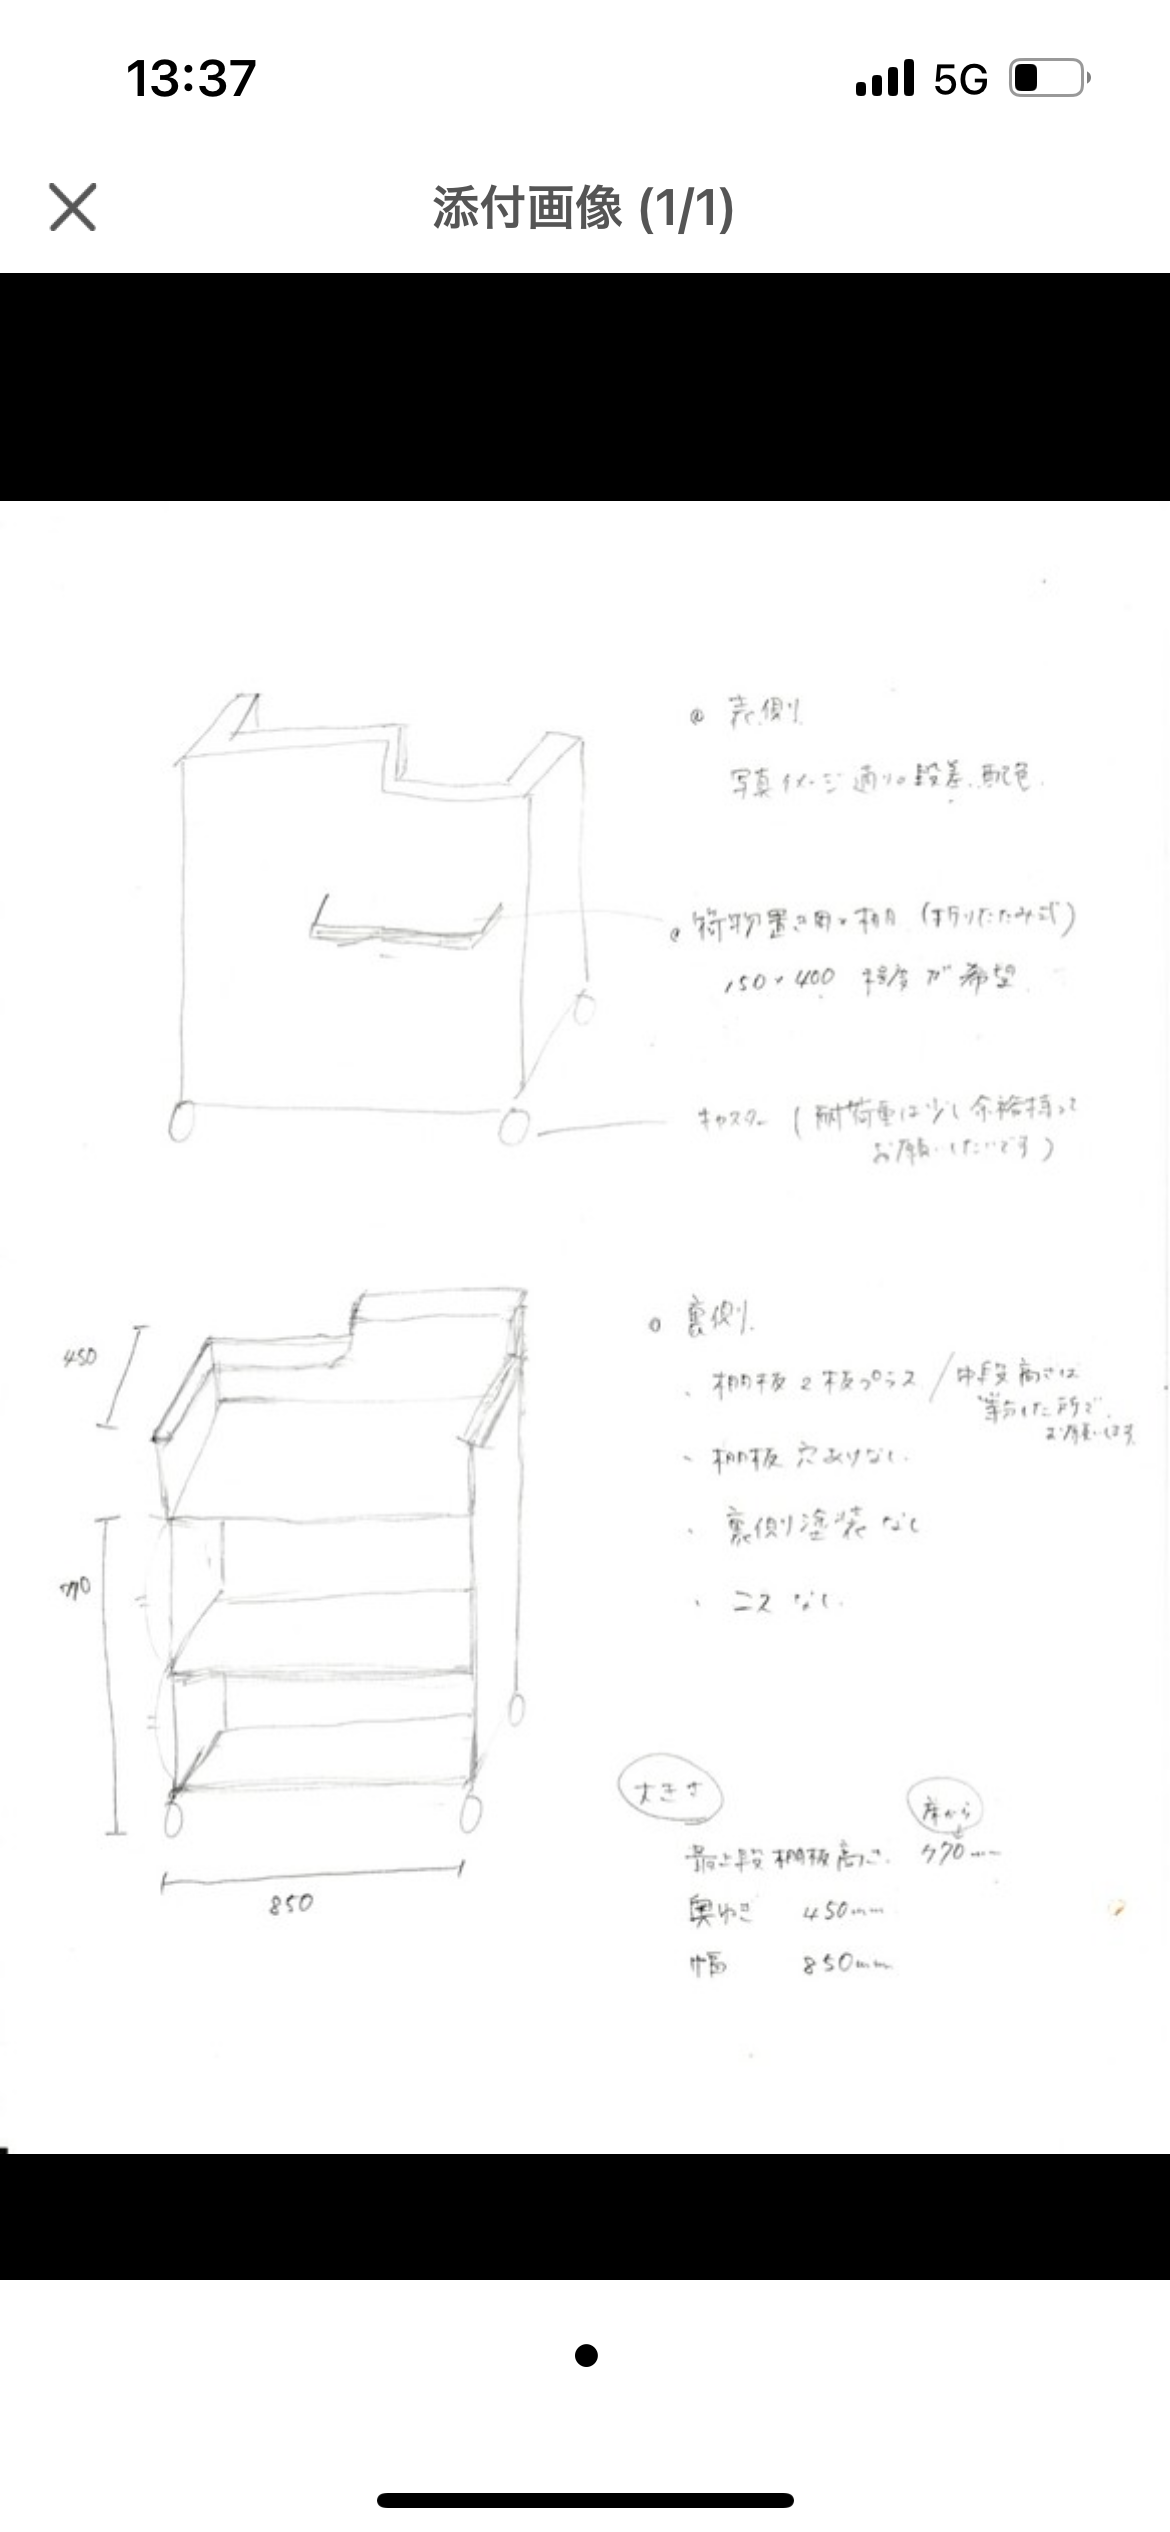 13:37
5G
添付画像 (1/1)
表側
写真イメージ通りの段差、配色
荷物置き用の棚 (折りたたみ式)
150×400 程度が希望
キャスター (耐荷重は少し余裕持って
お願いしたいです)
450
裏側
・棚板2枚プラス / 中段高さは
等分した所で
お願いします
・棚板 穴あけなし
770
・裏側塗装なし
・ニスなし
大きさ
床から
最上段棚板高さ 770mm
850
奥ゆき 450mm
幅 850mm